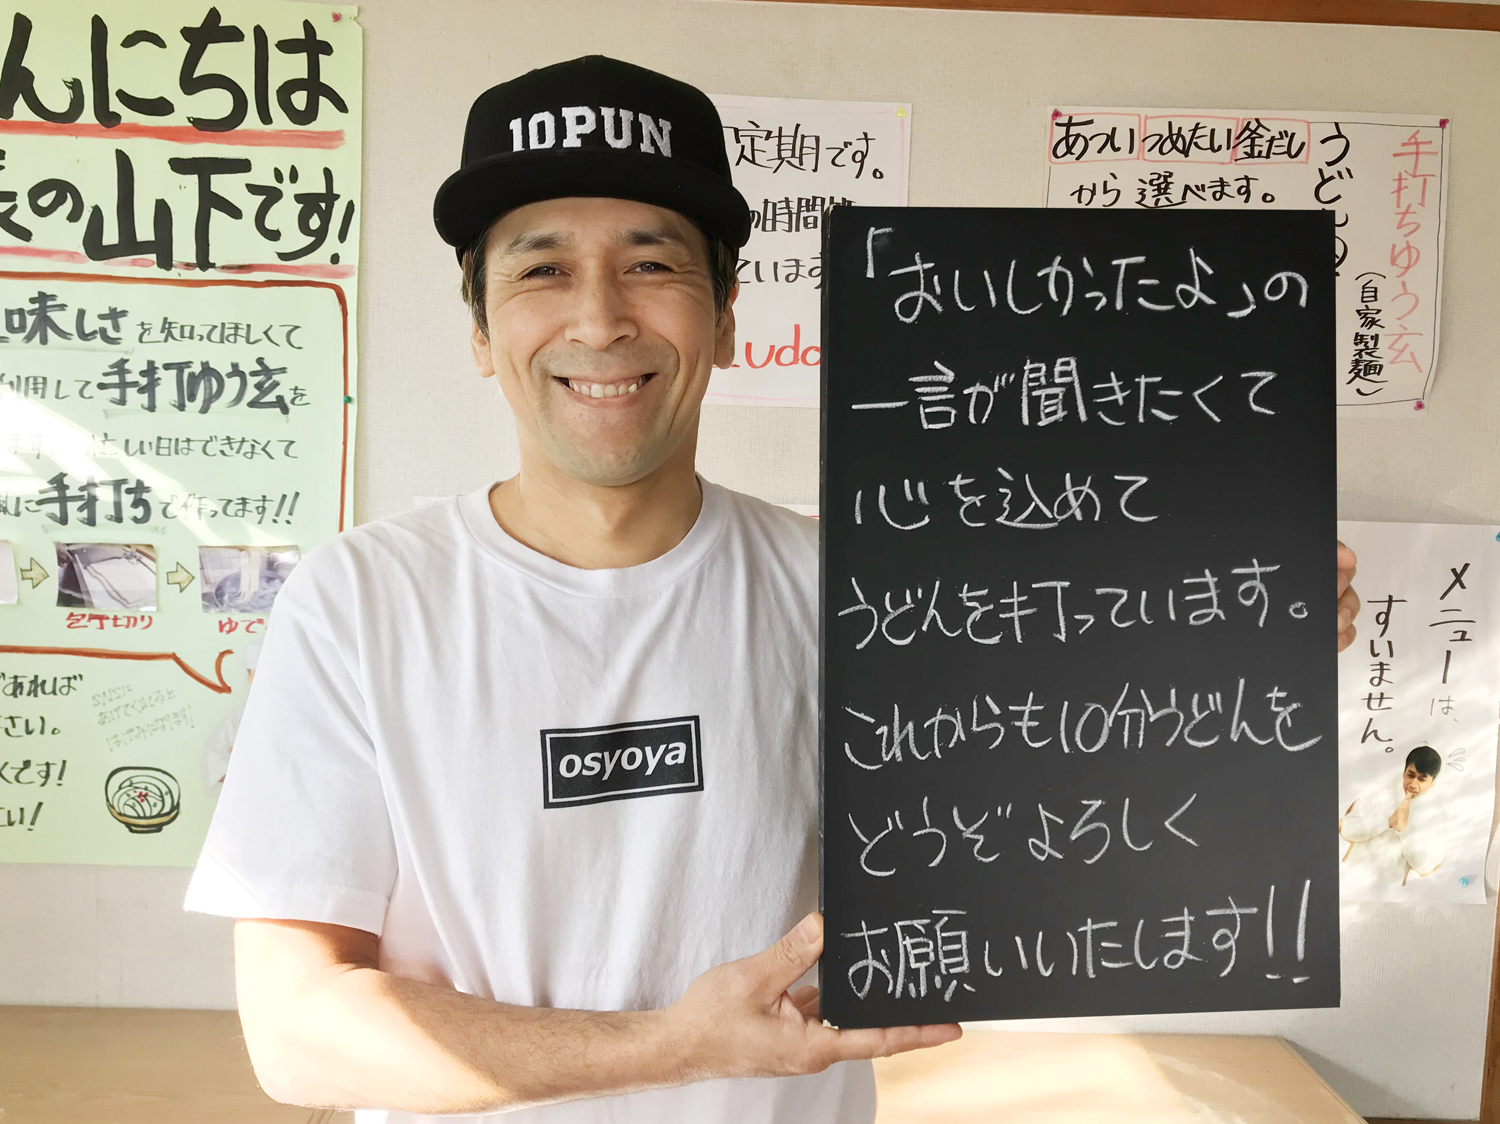 んにちは
の山下です!
味しさを知ってほしくて
利用して手打ゆう玄を
しい日はできなくて
に手打ちで作ってます!!
包丁切り
ゆで
であれば
さい。
くです!
10PUN
osyoya
定期です。
の時間
ています
udo
あつい つめたい 釜だし
から 選べます。
うどんの
手打ちゆう玄
(自家製麺)
「おいしかったよ」の
一言が聞きたくて
心を込めて
うどんを打っています。
これからも10分うどんを
どうぞよろしく
お願いいたします!!
メニューは、
すいません。